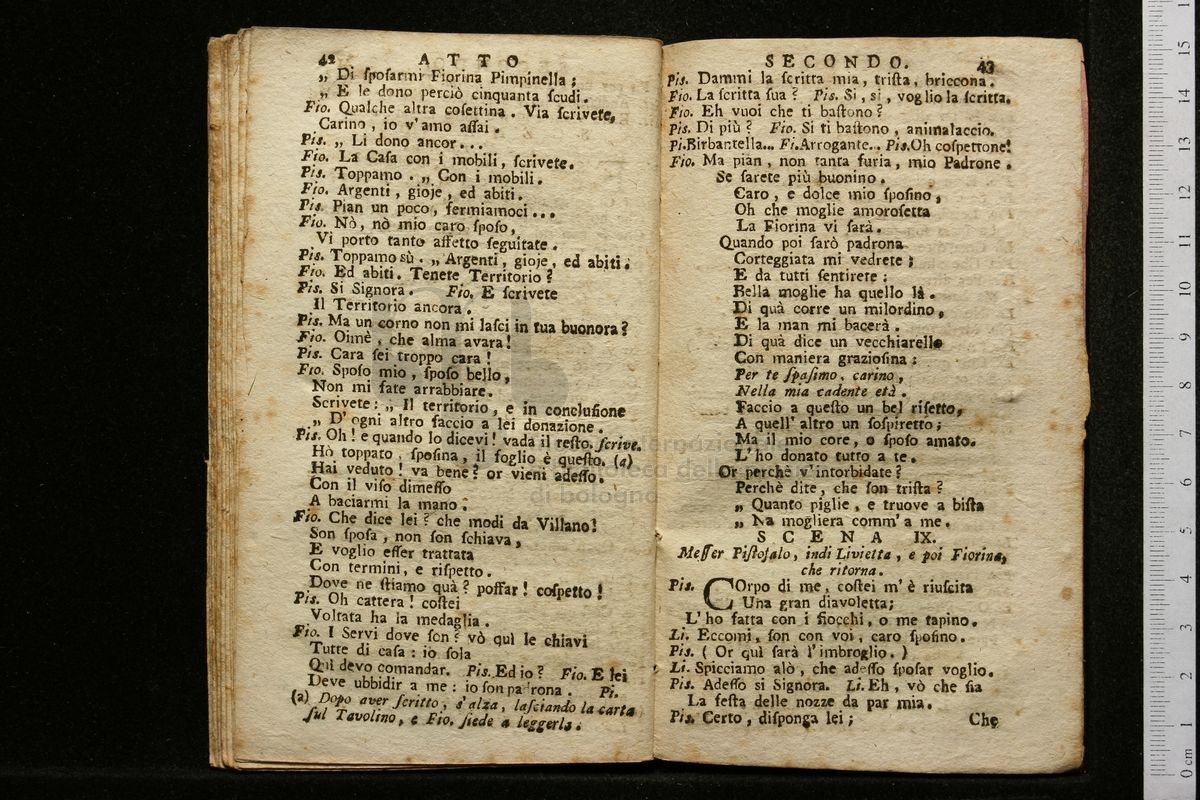 42 ATTO
„ Di ſpoſarmi Fiorina Pimpinella ;
„ E le dono perciò cinquanta ſcudi.
Fio. Qualche altra coſettina. Via ſcrivete,
Carino, io v'amo aſſai.
Pis. „ Li dono ancor...
Fio. La Caſa con i mobili, ſcrivete.
Pis. Toppamo. „ Con i mobili.
Fio. Argenti, gioje, ed abiti.
Pis. Pian un poco, fermiamoci...
Fio. Nò, nò mio caro ſpoſo,
Vi porto tanto affetto ſeguitate.
Pis. Toppamo sù. „ Argenti, gioje, ed abiti.
Fio. Ed abiti. Tenete Territorio?
Pis. Si Signora. Fio. E ſcrivete
Il Territorio ancora.
Pis. Ma un corno non mi laſci in tua buonora?
Fio. Oimè, che alma avara!
Pis. Cara ſei troppo cara!
Fio. Spoſo mio, ſpoſo bello,
Non mi fate arrabbiare.
Scrivete: „ Il territorio, e in concluſione
„ D'ogni altro faccio a lei donazione.
Pis. Oh! e quando lo dicevi! vada il reſto. ſcrive.
Hò toppato, ſpoſina, il foglio è queſto. (a)
Hai veduto! va bene? or vieni adeſſo.
Con il viſo dimeſſo
A baciarmi la mano.
Fio. Che dice lei? che modi da Villano!
Son ſpoſa, non ſon ſchiava,
E voglio eſſer trattata
Con termini, e riſpetto.
Dove ne ſtiamo quà? poſſar! coſpetto!
Pis. Oh cattera! coſtei
Voltata ha la medaglia.
Fio. I Servi dove ſon? vò quì le chiavi
Tutte di caſa: io ſola
Quì devo comandar. Pis. Ed io? Fio. E lei
Deve ubbidir a me: io ſon padrona. Pi.
(a) Dopo aver ſcritto, s'alza, laſciando la carta
ſul Tavolino, e Fio. ſiede a leggerla.
SECONDO. 43
Pis. Dammi la ſcritta mia, triſta, briccona.
Fio. La ſcritta ſua? Pis. Si, si, voglio la ſcritta.
Fio. Eh vuoi che ti baſtono?
Pis. Di più? Fio. Si ti baſtono, animalaccio.
Pi. Birbantella... Fi. Arrogante.. Pis. Oh coſpettone!
Fio. Ma pian, non tanta furia, mio Padrone.
Se ſarete più buonino.
Caro, e dolce mio ſpoſino,
Oh che moglie amoroſetta
La Fiorina vi ſarà.
Quando poi ſarò padrona
Corteggiata mi vedrete;
E da tutti ſentirete:
Bella moglie ha quello là.
Di quà corre un milordino,
E la man mi bacerà.
Di quà dice un vecchiarello
Con maniera grazioſina:
Per te ſpaſimo, carino,
Nella mia cadente età.
Faccio a queſto un bel riſetto,
A quell' altro un ſoſpiretto;
Ma il mio core, o ſpoſo amato.
L'ho donato tutto a te.
Or perchè v'intorbidate?
Perchè dite, che ſon triſta?
„ Quanto piglie, e truove a biſta
„ Na mogliera comm' a me.
SCENA IX.
Meſſer Piſtofalo, indi Livietta, e poi Fiorina,
che ritorna.
Pis. COrpo di me, coſtei m'è riuſcita
Una gran diavoletta;
L'ho fatta con i fiocchi, o me tapino.
Li. Eccomi, ſon con voi, caro ſpoſino.
Pis. ( Or quì ſarà l'imbroglio. )
Li. Spicciamo alò, che adeſſo ſpoſar voglio.
Pis. Adeſſo si Signora. Li. Eh, vò che ſia
La feſta delle nozze da par mia.
Pis. Certo, diſponga lei; Che
di bologna
0 cm 1 2 3 4 5 6 7 8 9 10 11 12 13 14 15